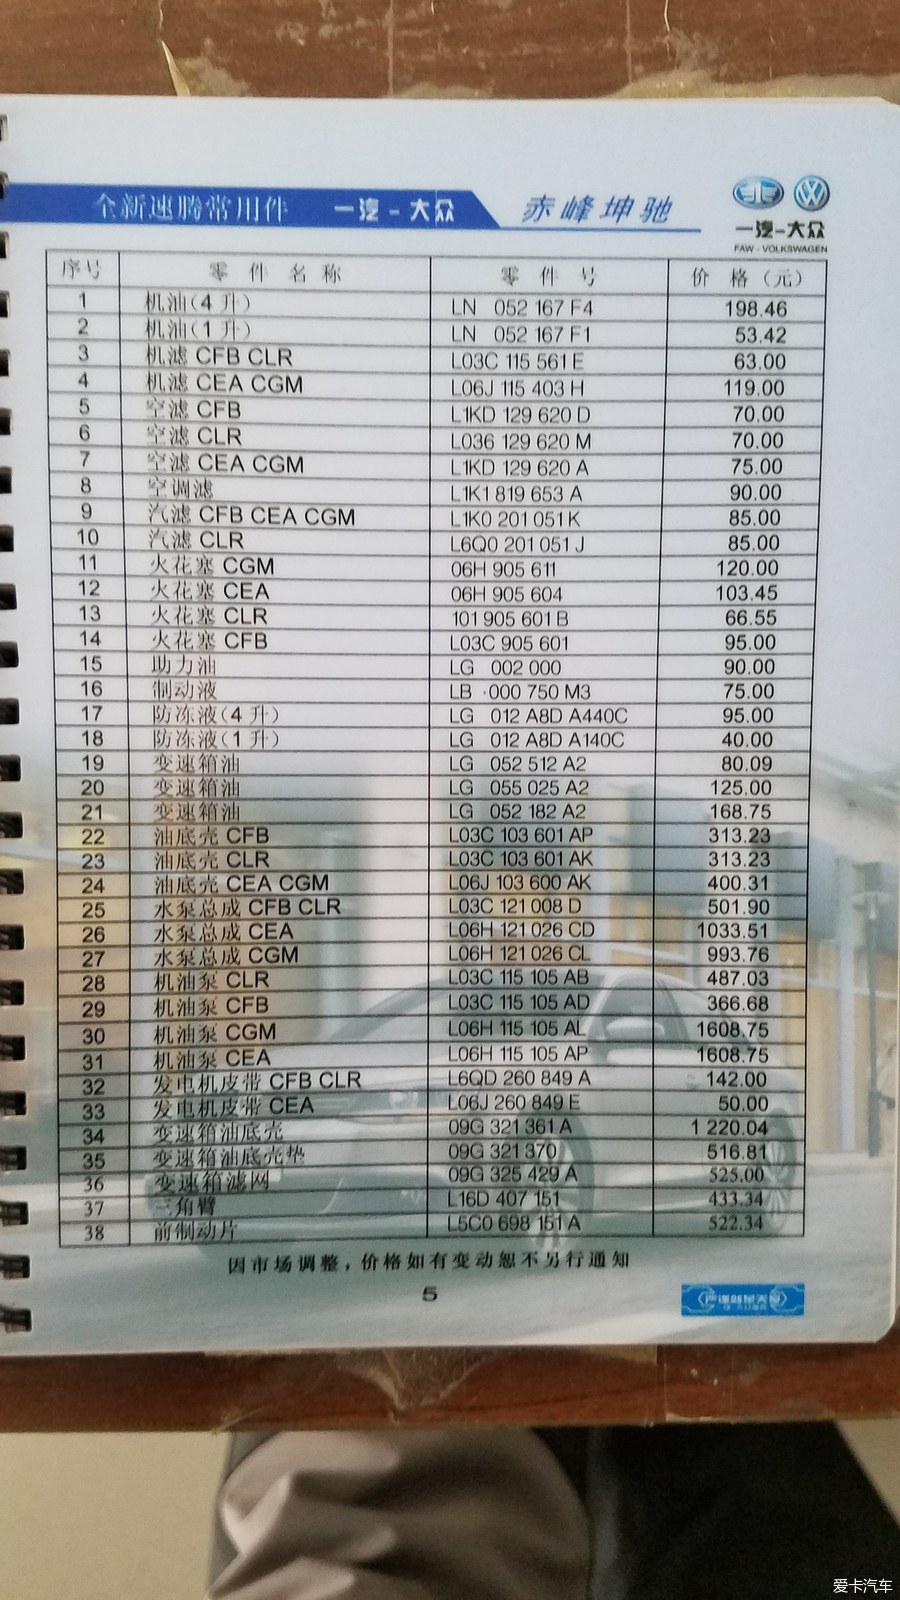 全新速腾常用件 一汽-大众 赤峰坤驰
一汽-大众
FAW - VOLKSWAGEN
序号 零件名称 零件号 价格(元)
1 机油(4升) LN 052 167 F4 198.46
2 机油(1升) LN 052 167 F1 53.42
3 机滤 CFB CLR L03C 115 561 E 63.00
4 机滤 CEA CGM L06J 115 403 H 119.00
5 空滤 CFB L1KD 129 620 D 70.00
6 空滤 CLR L036 129 620 M 70.00
7 空滤 CEA CGM L1KD 129 620 A 75.00
8 空调滤 L1K1 819 653 A 90.00
9 汽滤 CFB CEA CGM L1K0 201 051 K 85.00
10 汽滤 CLR L6Q0 201 051 J 85.00
11 火花塞 CGM 06H 905 611 120.00
12 火花塞 CEA 06H 905 604 103.45
13 火花塞 CLR 101 905 601 B 66.55
14 火花塞 CFB L03C 905 601 95.00
15 助力油 LG 002 000 90.00
16 制动液 LB 000 750 M3 75.00
17 防冻液(4升) LG 012 A8D A440C 95.00
18 防冻液(1升) LG 012 A8D A140C 40.00
19 变速箱油 LG 052 512 A2 80.09
20 变速箱油 LG 055 025 A2 125.00
21 变速箱油 LG 052 182 A2 168.75
22 油底壳 CFB L03C 103 601 AP 313.23
23 油底壳 CLR L03C 103 601 AK 313.23
24 油底壳 CEA CGM L06J 103 600 AK 400.31
25 水泵总成 CFB CLR L03C 121 008 D 501.90
26 水泵总成 CEA L06H 121 026 CD 1033.51
27 水泵总成 CGM L06H 121 026 CL 993.76
28 机油泵 CLR L03C 115 105 AB 487.03
29 机油泵 CFB L03C 115 105 AD 366.68
30 机油泵 CGM L06H 115 105 AL 1608.75
31 机油泵 CEA L06H 115 105 AP 1608.75
32 发电机皮带 CFB CLR L6QD 260 849 A 142.00
33 发电机皮带 CEA L06J 260 849 E 50.00
34 变速箱油底壳 09G 321 361 A 1 220.04
35 变速箱油底壳垫 09G 321 370 516.81
36 变速箱滤网 09G 325 429 A 525.00
37 三角臂 L16D 407 151 433.34
38 前制动片 L5C0 698 151 A 522.34
因市场调整，价格如有变动恕不另行通知
5
爱卡汽车